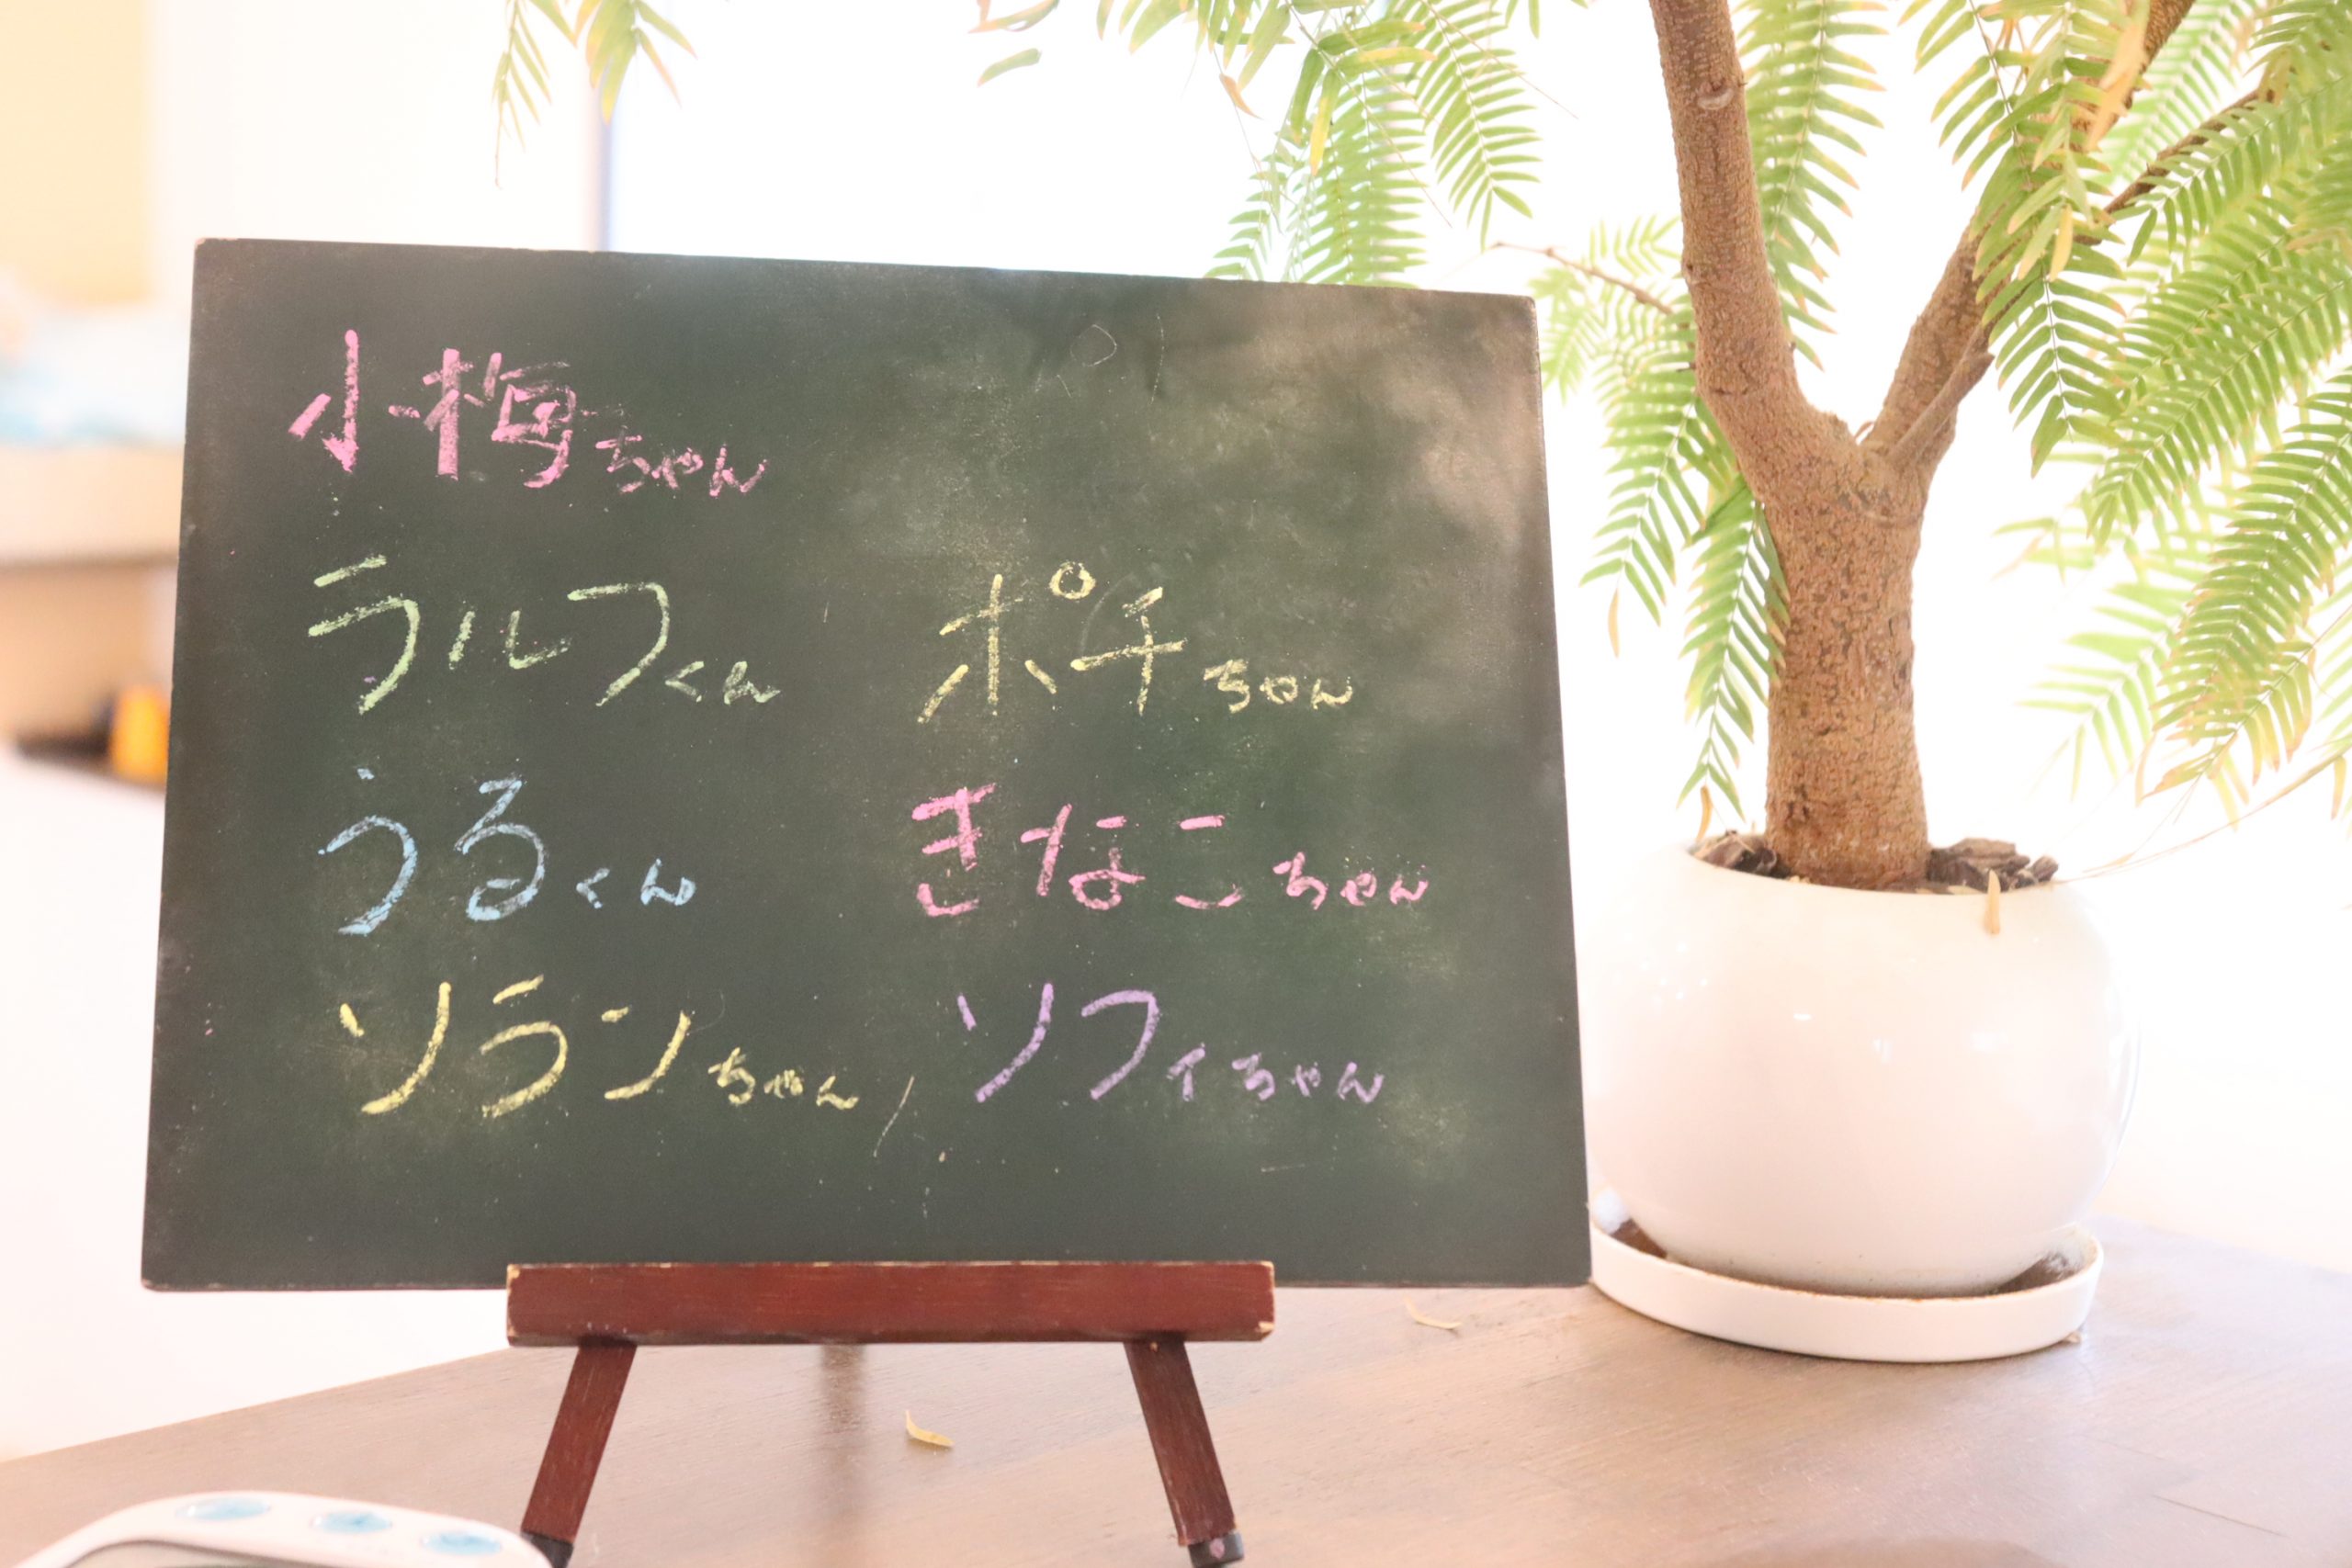 小梅ちゃん
ラルフくん ポチちゃん
うるくん きなこちゃん
ソランちゃん, ソフィちゃん